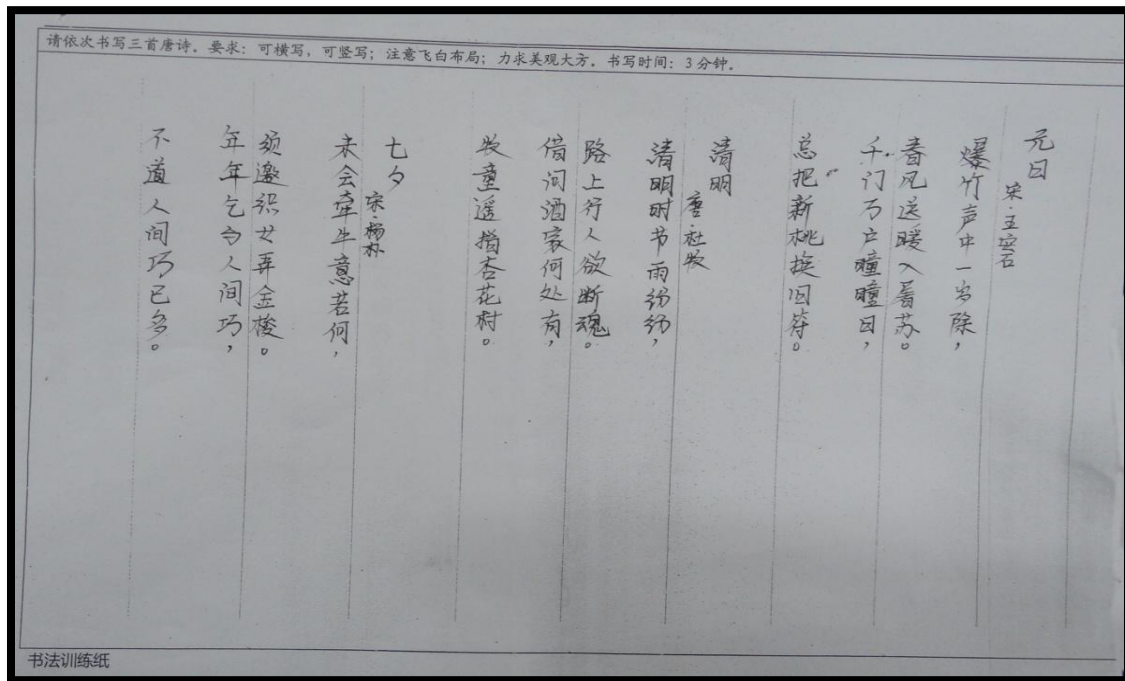 请依次书写三首唐诗。要求：可横写，可竖写；注意飞白布局；力求美观大方。书写时间：3分钟。
元日
宋·王安石
爆竹声中一岁除，
春风送暖入屠苏。
千门万户曈曈日，
总把新桃换旧符。
清明
唐·杜牧
清明时节雨纷纷，
路上行人欲断魂。
借问酒家何处有，
牧童遥指杏花村。
七夕
宋·杨朴
未会牵牛意若何，
须邀织女弄金梭。
年年乞与人间巧，
不道人间巧已多。
书法训练纸